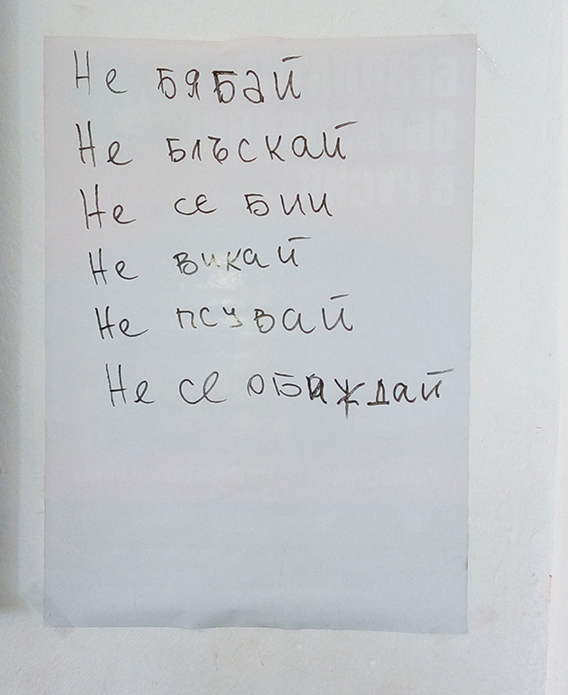 Не бябай
Не блъскай
Не се бии
Не викай
Не псувай
Не се обаждай